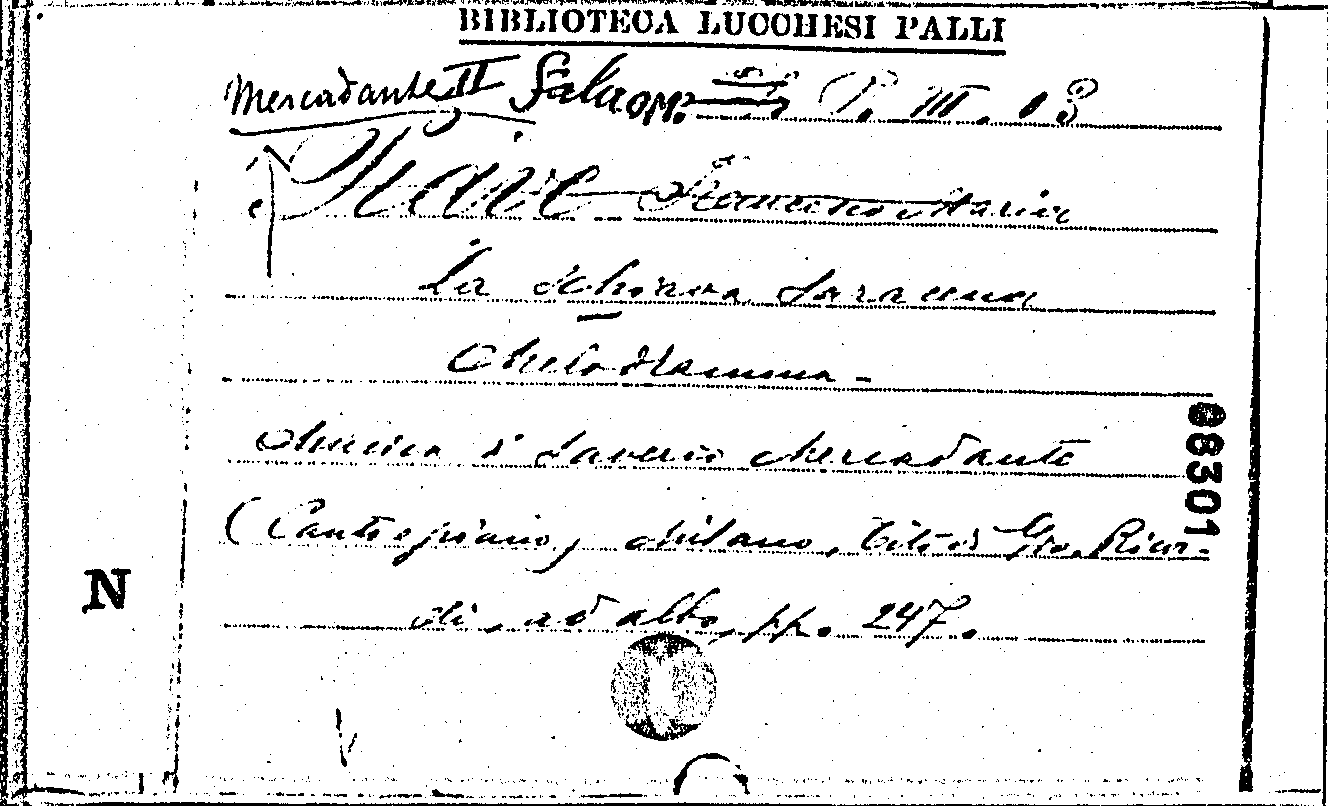 BIBLIOTECA LUCCHESI PALLI
Mercadante II Sala P. III. 03
Piave Francesco Maria
La Schiava Saracena
Melodramma -
Musica di Saverio Mercadante
(Canto e piano) Milano, Tito di Gio. Ricor-
di, ad albo, pp. 247.
68301
N